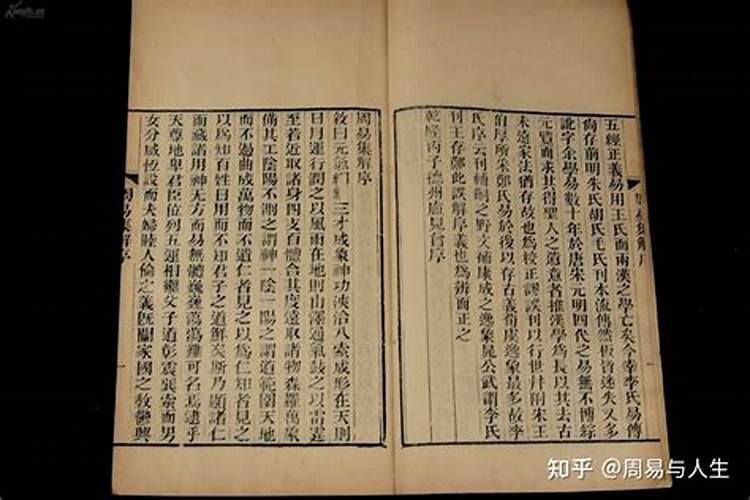 五經正義易用王氏而兩漢之學亡矣今幸李氏易傳
尙存前明朱氏胡氏毛氏刊本流傳然板皆迷失又多
訛字余學易數十年於唐宋元明四代之易無不博綜
元覽而求其得聖人之遺意者推漢學爲長以其去古
未遠家法猶存故也爲校正謬誤刊以行世幷附朱王
伯厚所采鄭氏易於後以存古義荀虞逸象最多故李
氏序云刊輔嗣之野文補康成之逸象晁公武謂李氏
刊王存鄭此誤解序義也爲辨而正之
乾隆丙子德州盧見曾序
周易集解序
敘曰元氣絪縕三才成象神功浹洽八索成形在天則
日月運行潤之以風雨在地則山澤通氣鼓之以雷霆
至若近取諸身四支百體合其度遠取諸物森羅萬象
備其工陰陽不測之謂神一陰一陽之謂道範圍天地
而不過曲成萬物而不遺仁者見之以爲仁知者見之
以爲知百姓日用而不知君子之道鮮矣斯乃顯諸仁
而藏諸用神无方而易無體巍巍蕩蕩難可名焉逮乎
天尊地卑君臣位列五運相繼父子道彰震巽索而男
女分咸恆設而夫婦睦人倫之義旣闡家國之敎鬱興
周易集解序
知乎 @周易与人生